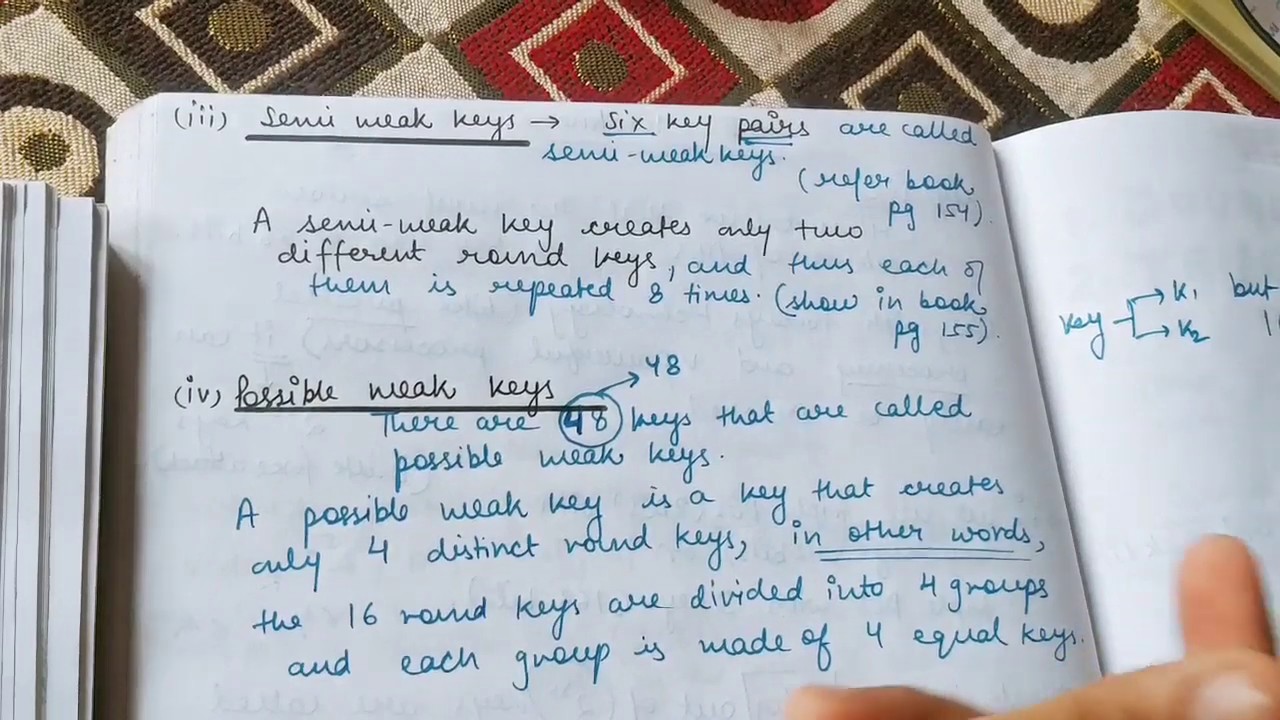 (iii) Semi weak keys → Six key pairs are called
semi-weak keys.
(refer book
pg 154).
A semi-weak key creates only two
different round keys, and thus each of
them is repeated 8 times. (show in book
pg 155).
(iv) Possible weak keys
48
There are 48 keys that are called
possible weak keys.
A possible weak key is a key that creates
only 4 distinct round keys, in other words,
the 16 round keys are divided into 4 groups
and each group is made of 4 equal keys.
key
K1 but
K2